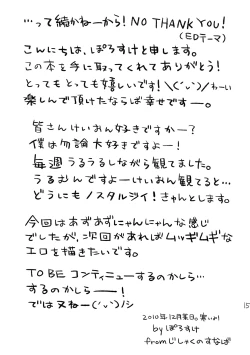 …って続かねーから! NO THANK YOU!
(EDテーマ)
こんにちは、ぽろすけと申します。
この本を手に取ってくれてありがとう!
とってもとっても嬉しいです! \(´ω`)/わーい
楽しんで頂けたならば幸せですー。
皆さんけいおん好きですかー?
僕は勿論大好きですよー!
毎週うるうるしながら観てました。
うるむんですよーけいおん観てると…
どうにもノスタルジイ!きゃんとします。
今回はあずあずにゃんにゃんな感じ
でしたが、次回があればムッギムギな
エロを描きたいです。
TO BE コンティニューするのかしら…
するのかしらーーー!
では又ねー(´ω`)ノシ
2010年12月某日。寒いよ!
by ぽろすけ
from じしゃくのすなば
15